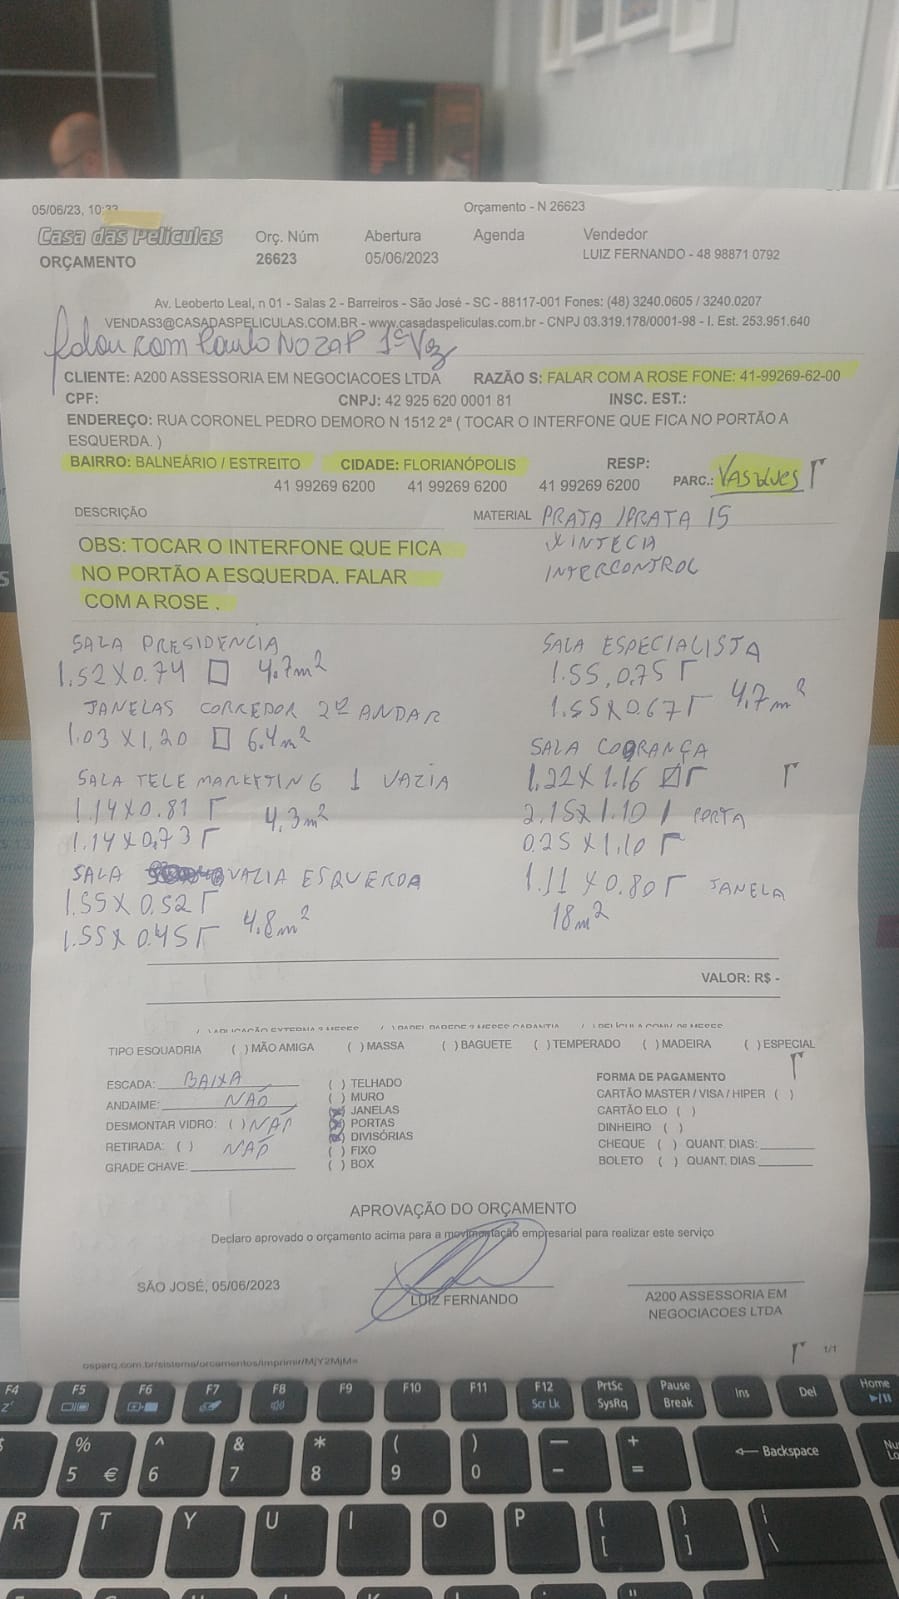 05/06/23, 10:33
Orçamento - N 26623
Casa das Películas
ORÇAMENTO
Orç. Núm
26623
Abertura
05/06/2023
Agenda
Vendedor
LUIZ FERNANDO - 48 98871 0792
Av. Leoberto Leal, n 01 - Salas 2 - Barreiros - São José - SC - 88117-001 Fones: (48) 3240.0605 / 3240.0207
VENDAS3@CASADASPELICULAS.COM.BR - www.casadaspeliculas.com.br - CNPJ 03.319.178/0001-98 - I. Est. 253.951.640
falou com Paulo NO ZAP 1ª Vez
CLIENTE: A200 ASSESSORIA EM NEGOCIACOES LTDA RAZÃO S: FALAR COM A ROSE FONE: 41-99269-62-00
CPF: CNPJ: 42 925 620 0001 81 INSC. EST.:
ENDEREÇO: RUA CORONEL PEDRO DEMORO N 1512 2ª ( TOCAR O INTERFONE QUE FICA NO PORTÃO A
ESQUERDA. )
BAIRRO: BALNEÁRIO / ESTREITO CIDADE: FLORIANÓPOLIS RESP:
41 99269 6200 41 99269 6200 41 99269 6200 PARC.: VASQUES
DESCRIÇÃO
MATERIAL PRATA/PRATA 15
XINTECIA
INTERCONTROL
OBS: TOCAR O INTERFONE QUE FICA
NO PORTÃO A ESQUERDA. FALAR
COM A ROSE .
SALA PRESIDENCIA
1.52 X 0.74 4.7m²
JANELAS CORREDOR 2º ANDAR
1.03 X 1,20 6.4m²
SALA TELE MARKETING 1 VAZIA
1.14 X 0.81
4,3m²
1.14 X 0,73
SALA VAZIA ESQUERDA
1.55 X 0.52
4.8m²
1.55 X 0.45
SALA ESPECIALISTA
1.55, 0,75
4,7m²
1.55 X 0.67
SALA COBRANÇA
1.22 X 1.16
2.15 X 1.10 1 PORTA
0.25 X 1.10
1.11 X 0.80 JANELA
18m²
VALOR: R$ -
( ) APLICAÇÃO EXTERNA 3 MESES ( ) PAPEL PAREDE 3 MESES GARANTIA
TIPO ESQUADRIA ( ) MÃO AMIGA ( ) MASSA ( ) BAGUETE ( ) TEMPERADO ( ) MADEIRA ( ) ESPECIAL
ESCADA: BAIXA
ANDAIME: NÃO
DESMONTAR VIDRO: ( ) NÃO
RETIRADA: ( ) NÃO
GRADE CHAVE:
( ) TELHADO
( ) MURO
(X) JANELAS
(X) PORTAS
(X) DIVISÓRIAS
( ) FIXO
( ) BOX
FORMA DE PAGAMENTO
CARTÃO MASTER / VISA / HIPER ( )
CARTÃO ELO ( )
DINHEIRO ( )
CHEQUE ( ) QUANT. DIAS:
BOLETO ( ) QUANT. DIAS
APROVAÇÃO DO ORÇAMENTO
Declaro aprovado o orçamento acima para a movimentação empresarial para realizar este serviço
SÃO JOSÉ, 05/06/2023
LUIZ FERNANDO
A200 ASSESSORIA EM
NEGOCIACOES LTDA
osparq.com.br/sistema/orcamentos/imprimir/MjY2MjM=
1/1
F4 F5 F6 F7 F8 F9 F10 F11 F12 PrtSc Pause Ins Del Home
Scr Lk SysRq Break
% ^ & * ( ) — + Backspace
5 € 6 7 8 9 0 - =
R T Y U I O P { } |
[ ] \